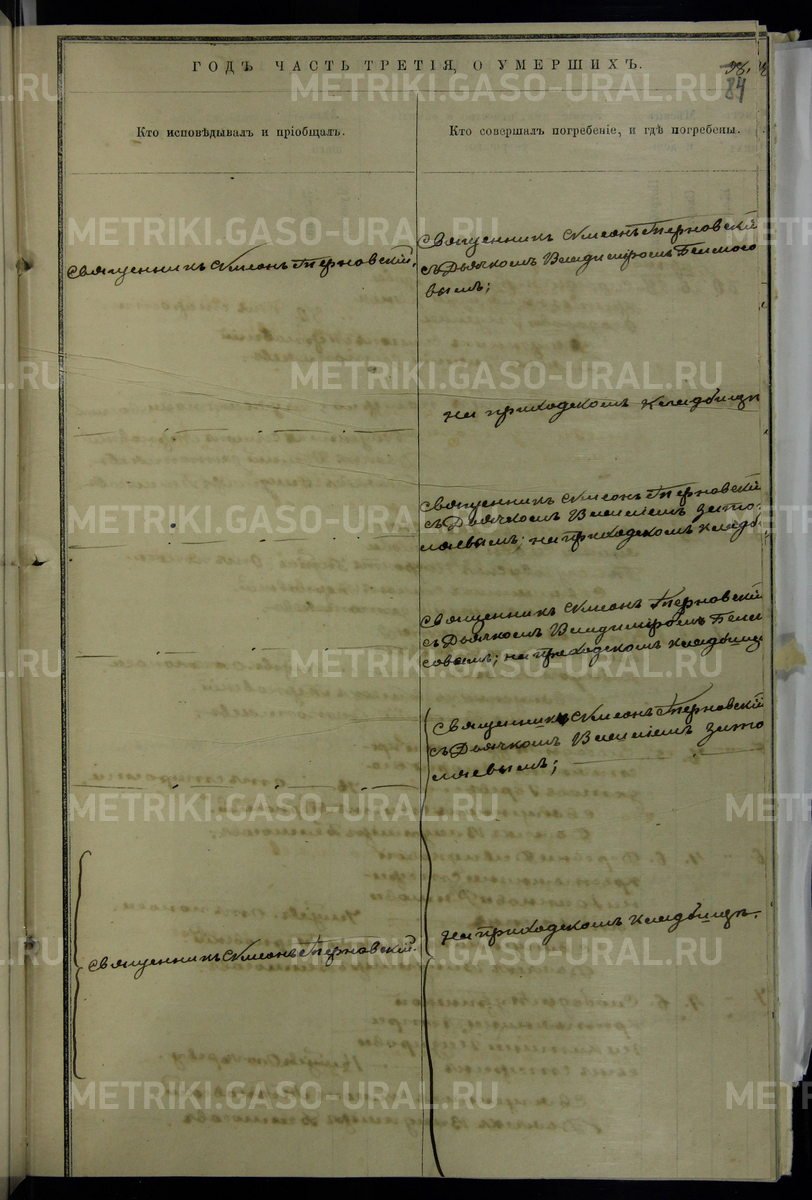 ГОДЪ ЧАСТЬ ТРЕТІЯ, О УМЕРШИХЪ.
84
Кто исповѣдывалъ и пріобщалъ.
Кто совершалъ погребеніе, и гдѣ погребены.
Священникъ Симеонъ Терновскій.
Священникъ Симеонъ Терновскій
съ Дьячкомъ Владимиромъ Белосо
вымъ;
на приходскомъ кладбищѣ
Священникъ Симеонъ Терновскій
съ Дьячкомъ
на приходскомъ кладб
Священникъ Симеонъ Терновскій
съ Дьячкомъ Владимиромъ
на приходскомъ кладбищѣ
Священникъ Симеонъ Терновскій
съ Дьячкомъ
Священникъ Симеонъ Терновскій.
на приходскомъ кладбищѣ.
METRIKI.GASO-URAL.RU